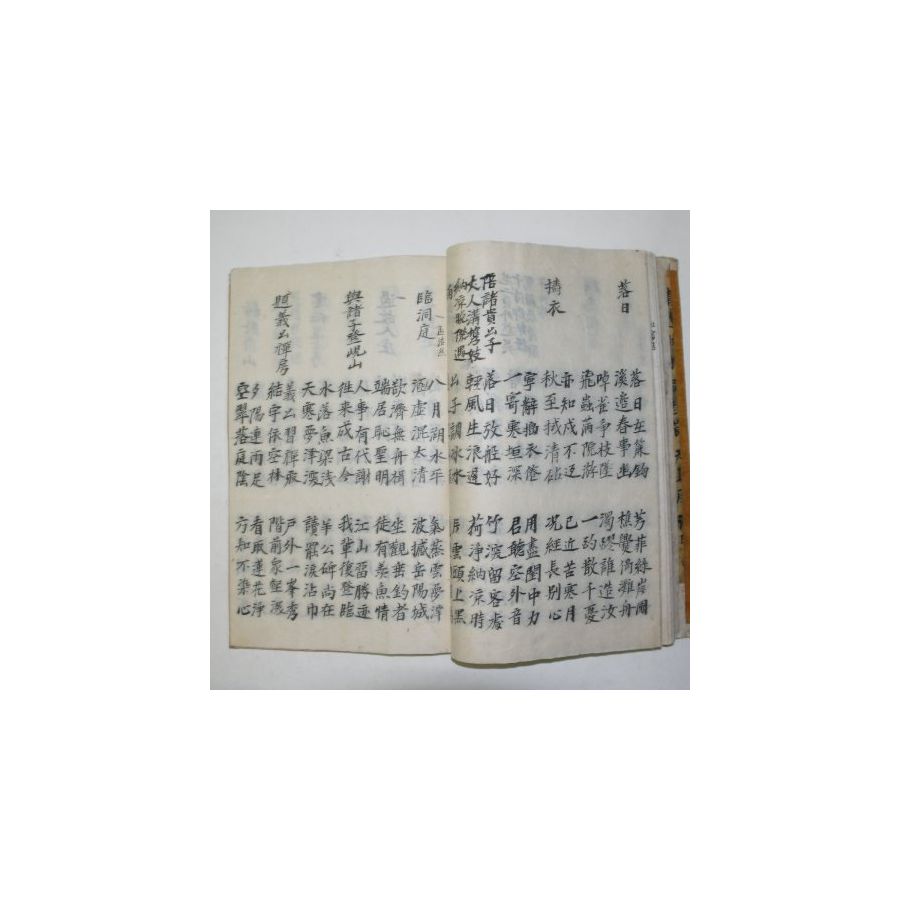 落日
落日在簾鉤 芳菲緣岸圃
溪邊春事幽 樵爨倚灘舟
啅雀爭枝墜 濁醪誰造汝
飛蟲滿院游 一酌散千憂
擣衣
亦知戍不返 已近苦寒月
秋至拭清砧 況經長別心
寧辭擣衣倦 用盡閨中力
一寄塞垣深 君聽空外音
陪諸貴公子
丈人溝携妓
納凉晩際遇
雨
落日放舡好 竹深留客處
輕風生浪遲 荷淨納凉時
公子調冰水 片雲頭上黑
臨洞庭
八月湖水平 氣蒸雲夢澤
涵虛混太清 波撼岳陽城
欲濟無舟楫 坐觀垂釣者
端居恥聖明 徒有羨魚情
與諸子登峴山
人事有代謝 江山留勝迹
徃來成古今 我輩復登臨
水落魚梁淺 羊公碑尚在
天寒夢澤深 讀罷淚沾巾
題義公禪房
義公習禪寂 戶外一峯秀
結宇依空林 階前衆壑深
夕陽連雨足 看取蓮花淨
空翠落庭陰 方知不染心